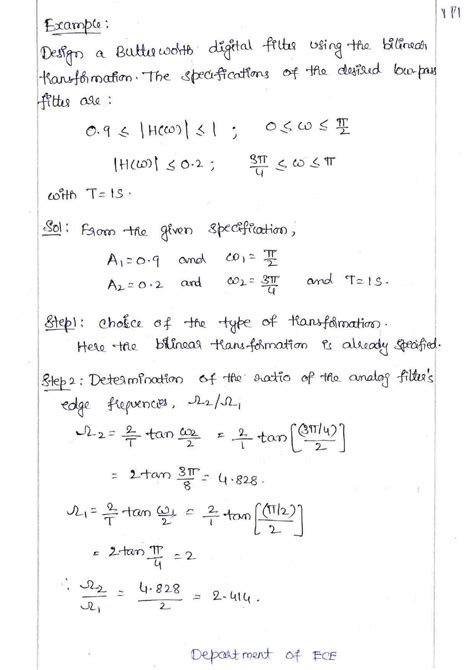 Example:
Design a Butterworth digital filter using the bilinear
transformation. The specifications of the desired low pass
filter are:
0.9 ≤ |H(ω)| ≤ 1 ; 0 ≤ ω ≤ π/2
|H(ω)| ≤ 0.2 ; 3π/4 ≤ ω ≤ π
with T = 1s.
Sol: From the given specification,
A₁ = 0.9 and ω₁ = π/2
A₂ = 0.2 and ω₂ = 3π/4 and T = 1s.
Step1: Choice of the type of transformation.
Here the bilinear transformation is already specified.
Step2: Determination of the ratio of the analog filter's
edge frequencies, Ω₂/Ω₁
Ω₂ = 2/T tan ω₂/2 = 2/1 tan[(3π/4)/2]
= 2 tan 3π/8 = 4.828.
Ω₁ = 2/T tan ω₁/2 = 2/1 tan[(π/2)/2]
= 2 tan π/4 = 2
∴ Ω₂/Ω₁ = 4.828/2 = 2.414.
Department of ECE